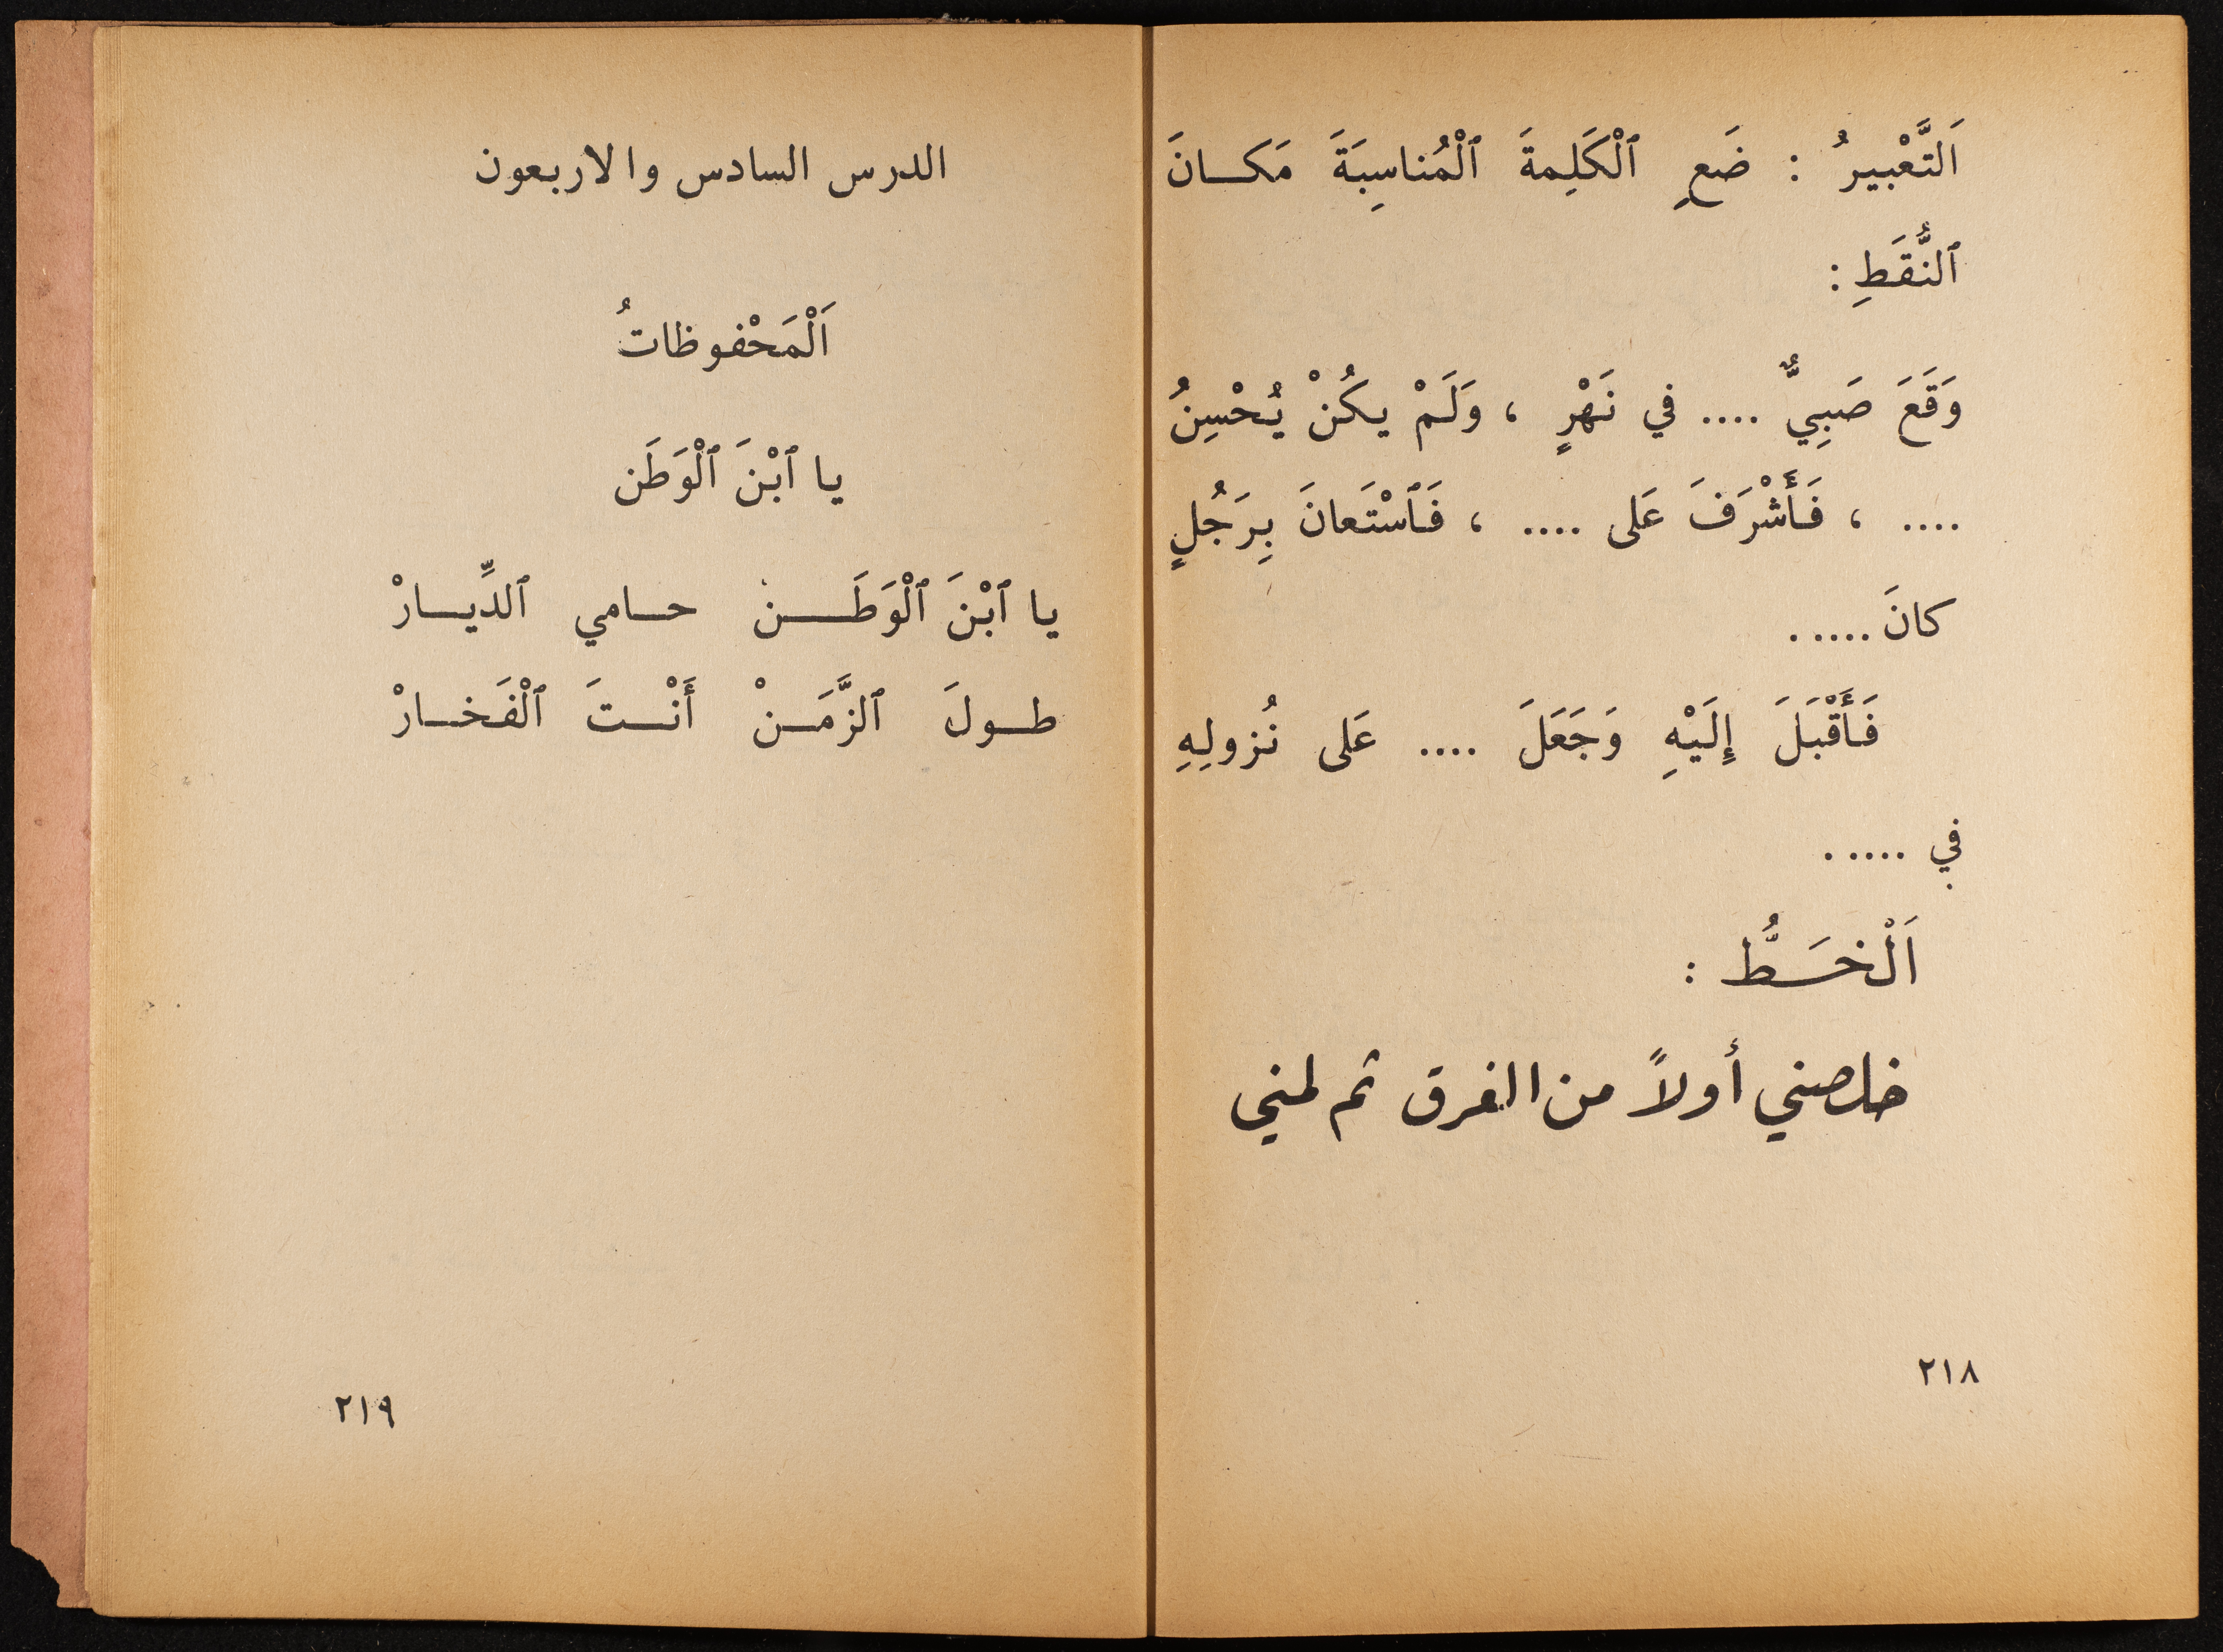 اَلتَّعْبيرُ : ضَعِ ٱلْكَلِمةَ ٱلْمُناسِبَةَ مَكـانَ
ٱلنُّقَطِ :
وَقَعَ صَبِيٌّ .... في نَهْرٍ ، وَلَمْ يكُنْ يُحْسِنُ
.... ، فَأَشْرَفَ عَلى .... ، فَٱسْتَعانَ بِرَجُلٍ
كانَ .....
فَأَقْبَلَ إِلَيْهِ وَجَعَلَ .... عَلى نُزولِهِ
في .....
اَلْخـَـطُّ :
خلصني أولاً من الغرق ثم لمني
٢١٨
الدرس السادس والاربعون
اَلْمَحْفوظاتُ
يا ٱبْنَ ٱلْوَطَن
يا ٱبْنَ ٱلْوَطَـــنْ حـامي ٱلدِّيـارْ
طـولَ ٱلزَّمَـنْ أَنْـتَ ٱلْفَخـارْ
٢١٩